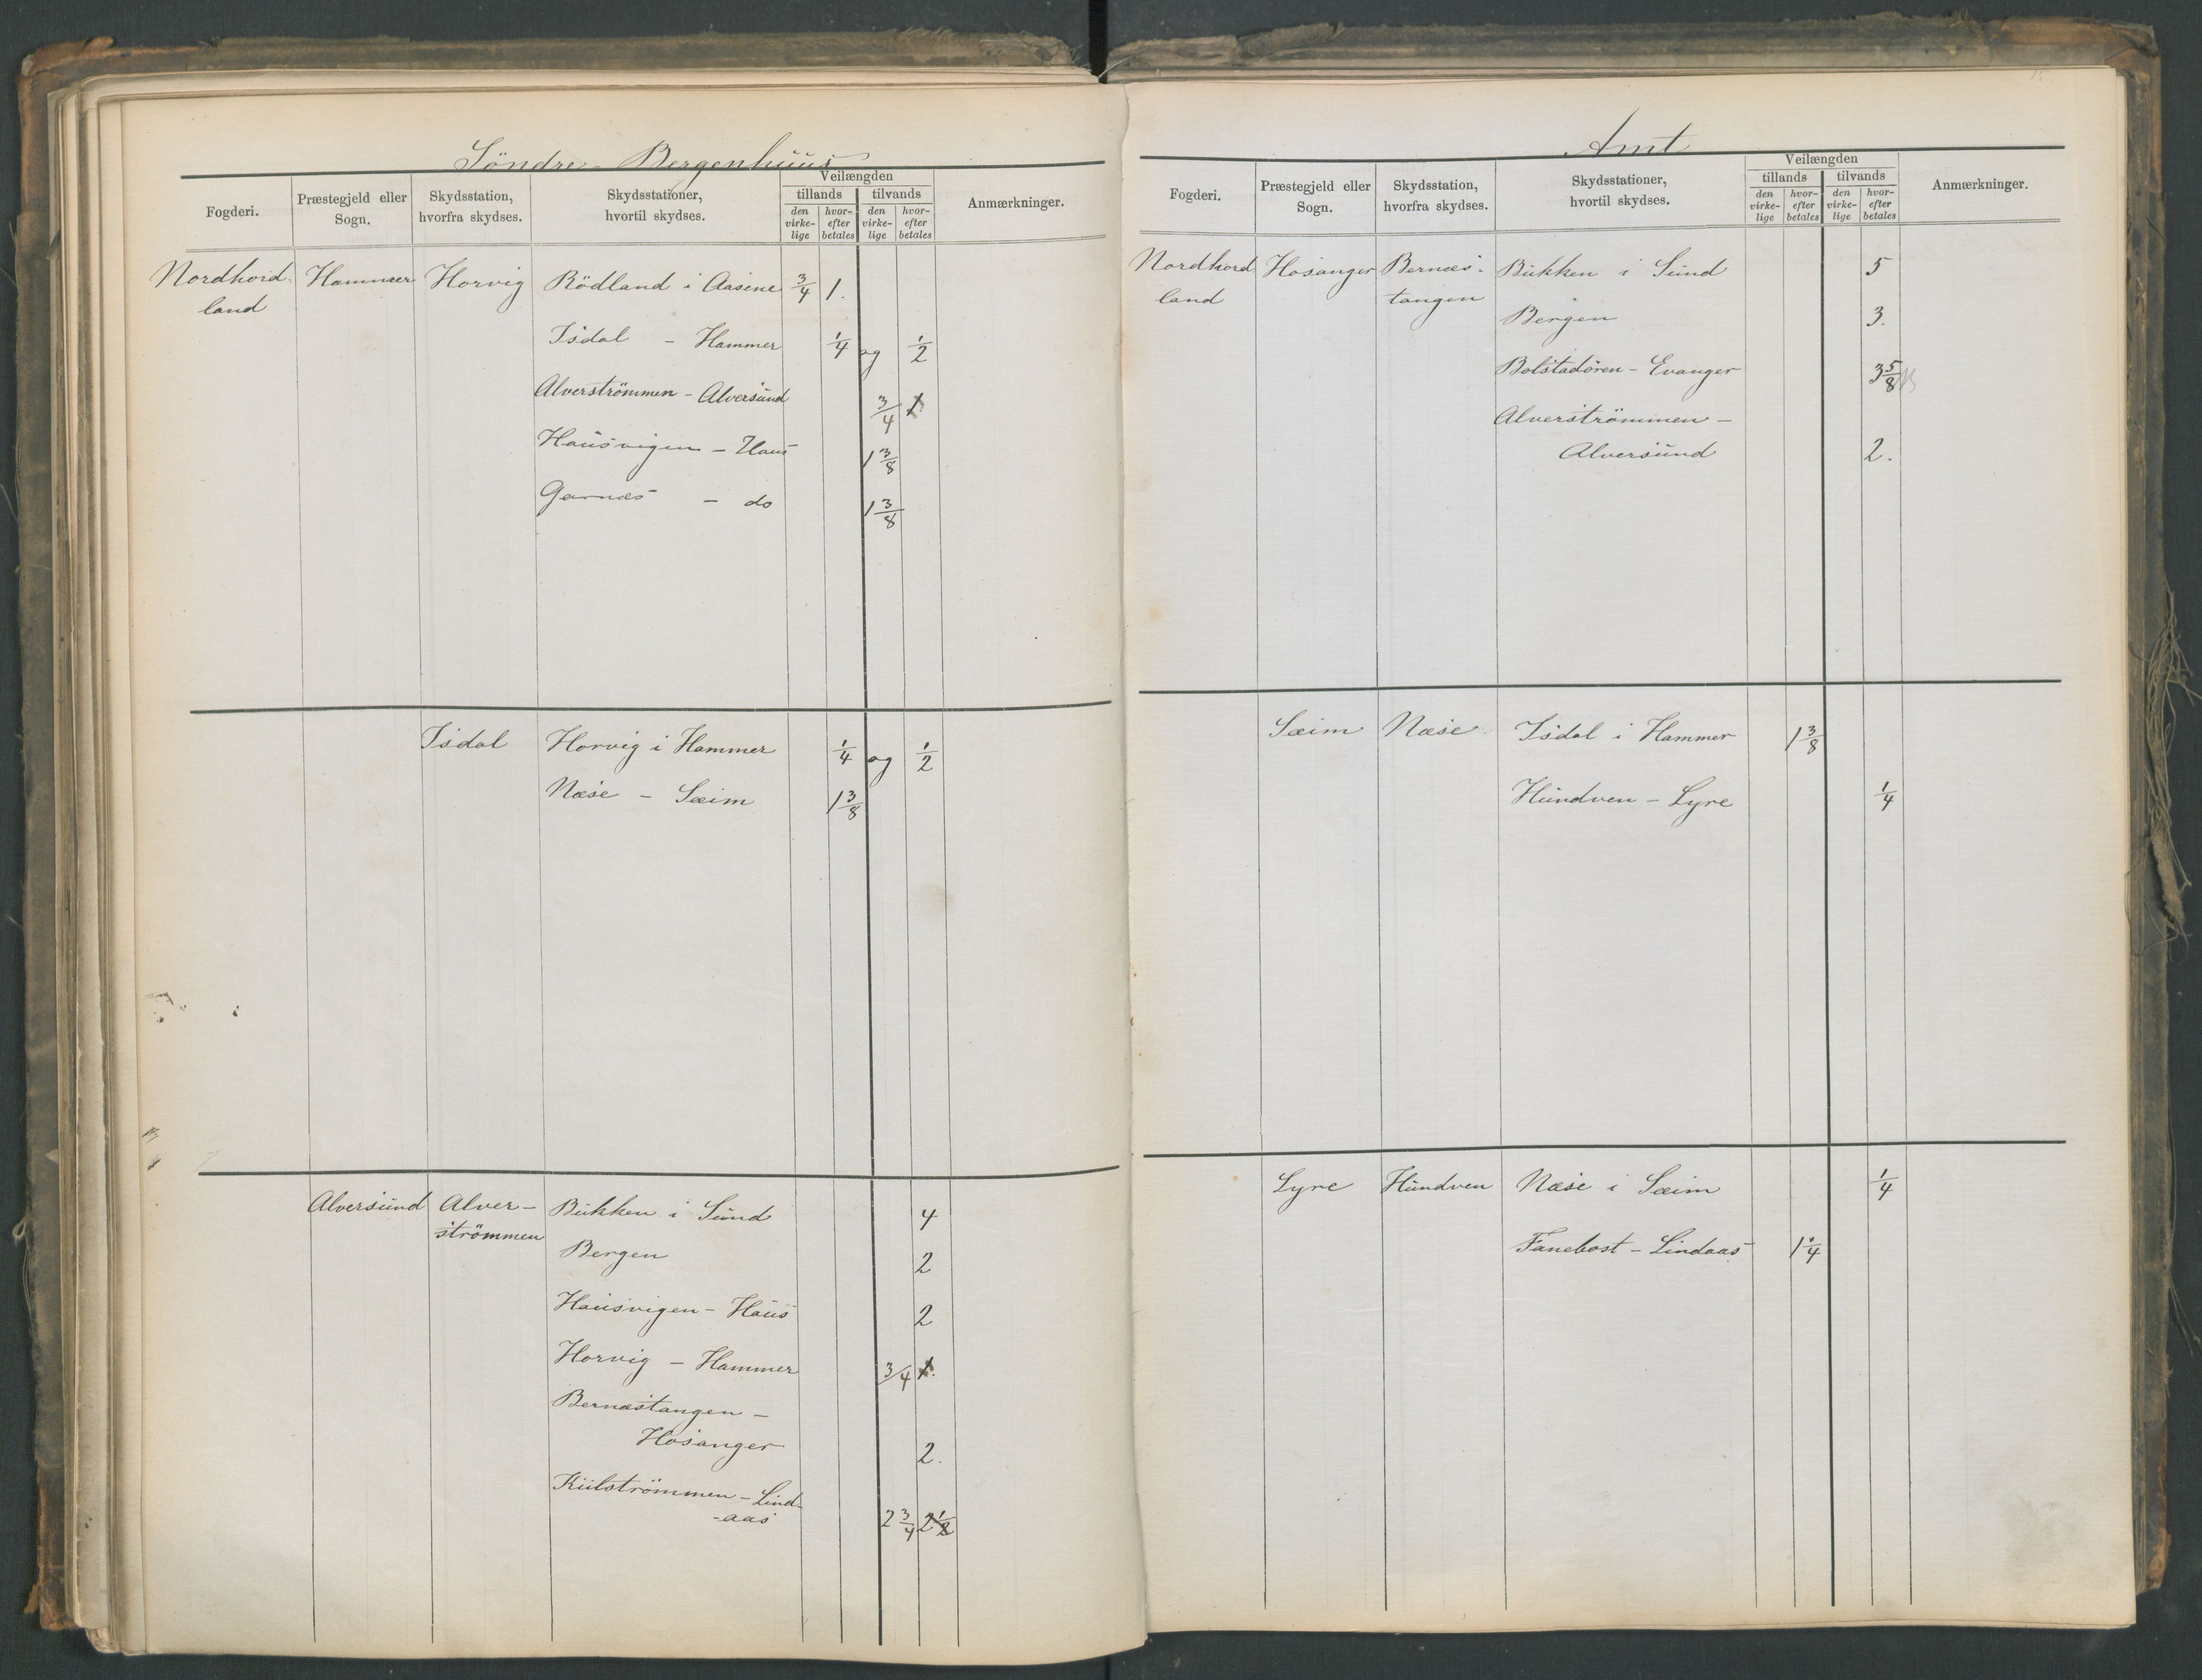 Söndre Bergenhuus
Fogderi. Præstegjeld eller Sogn. Skydsstation, hvorfra skydses. Skydsstationer, hvortil skydses. Veilængden tillands tilvands den virkelige hvorefter betales den virkelige hvorefter betales Anmærkninger.
Nordhord- Hammer Horvig Rödland i Aasene 3/4 1.
land
Isdal - Hammer 1/4 og 1/2
Alverströmmen - Alversund 3/4 1
Hausvigen - Haus 1 3/8
Garnæs - do 1 3/8
Isdal Horvig i Hammer 1/4 og 1/2
Næse - Sæim 1 3/8
Alversund Alver- Bukken i Sund 4
strömmen
Bergen 2
Hausvigen - Haus 2
Horvig - Hammer 3/4 1.
Bernæstangen -
Hosanger 2.
Kiilströmmen - Lind-
-aas 2 3/4 2 1/2
Amt
Fogderi. Præstegjeld eller Sogn. Skydsstation, hvorfra skydses. Skydsstationer, hvortil skydses. Veilængden tillands tilvands den virkelige hvorefter betales den virkelige hvorefter betales Anmærkninger.
Nordhord Hosanger Bernæs- Bukken i Sund 5
land tangen
Bergen 3.
Bolstadören - Evanger 3 5/8
Alverströmmen -
Alversund 2.
Sæim Næse Isdal i Hammer 1 3/8
Hundven - Lyre 1/4
Lyre Hundven Næse i Sæim 1/4
Fanebost - Lindaas 1 1/4